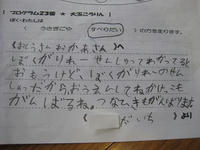 プログラム23番 ★大玉ころりん
ぼく・わたしは うさぎごや すべりだい の方を走ります。
《おとうさんおかあさん》へ
ぼくがりれーせんしゅってわかってると
おもうけど、ぼくがりれーのせん
しゅだからおうえんしてねかけっこも
がんばるね。つなひきもがんばります
だいち 》より